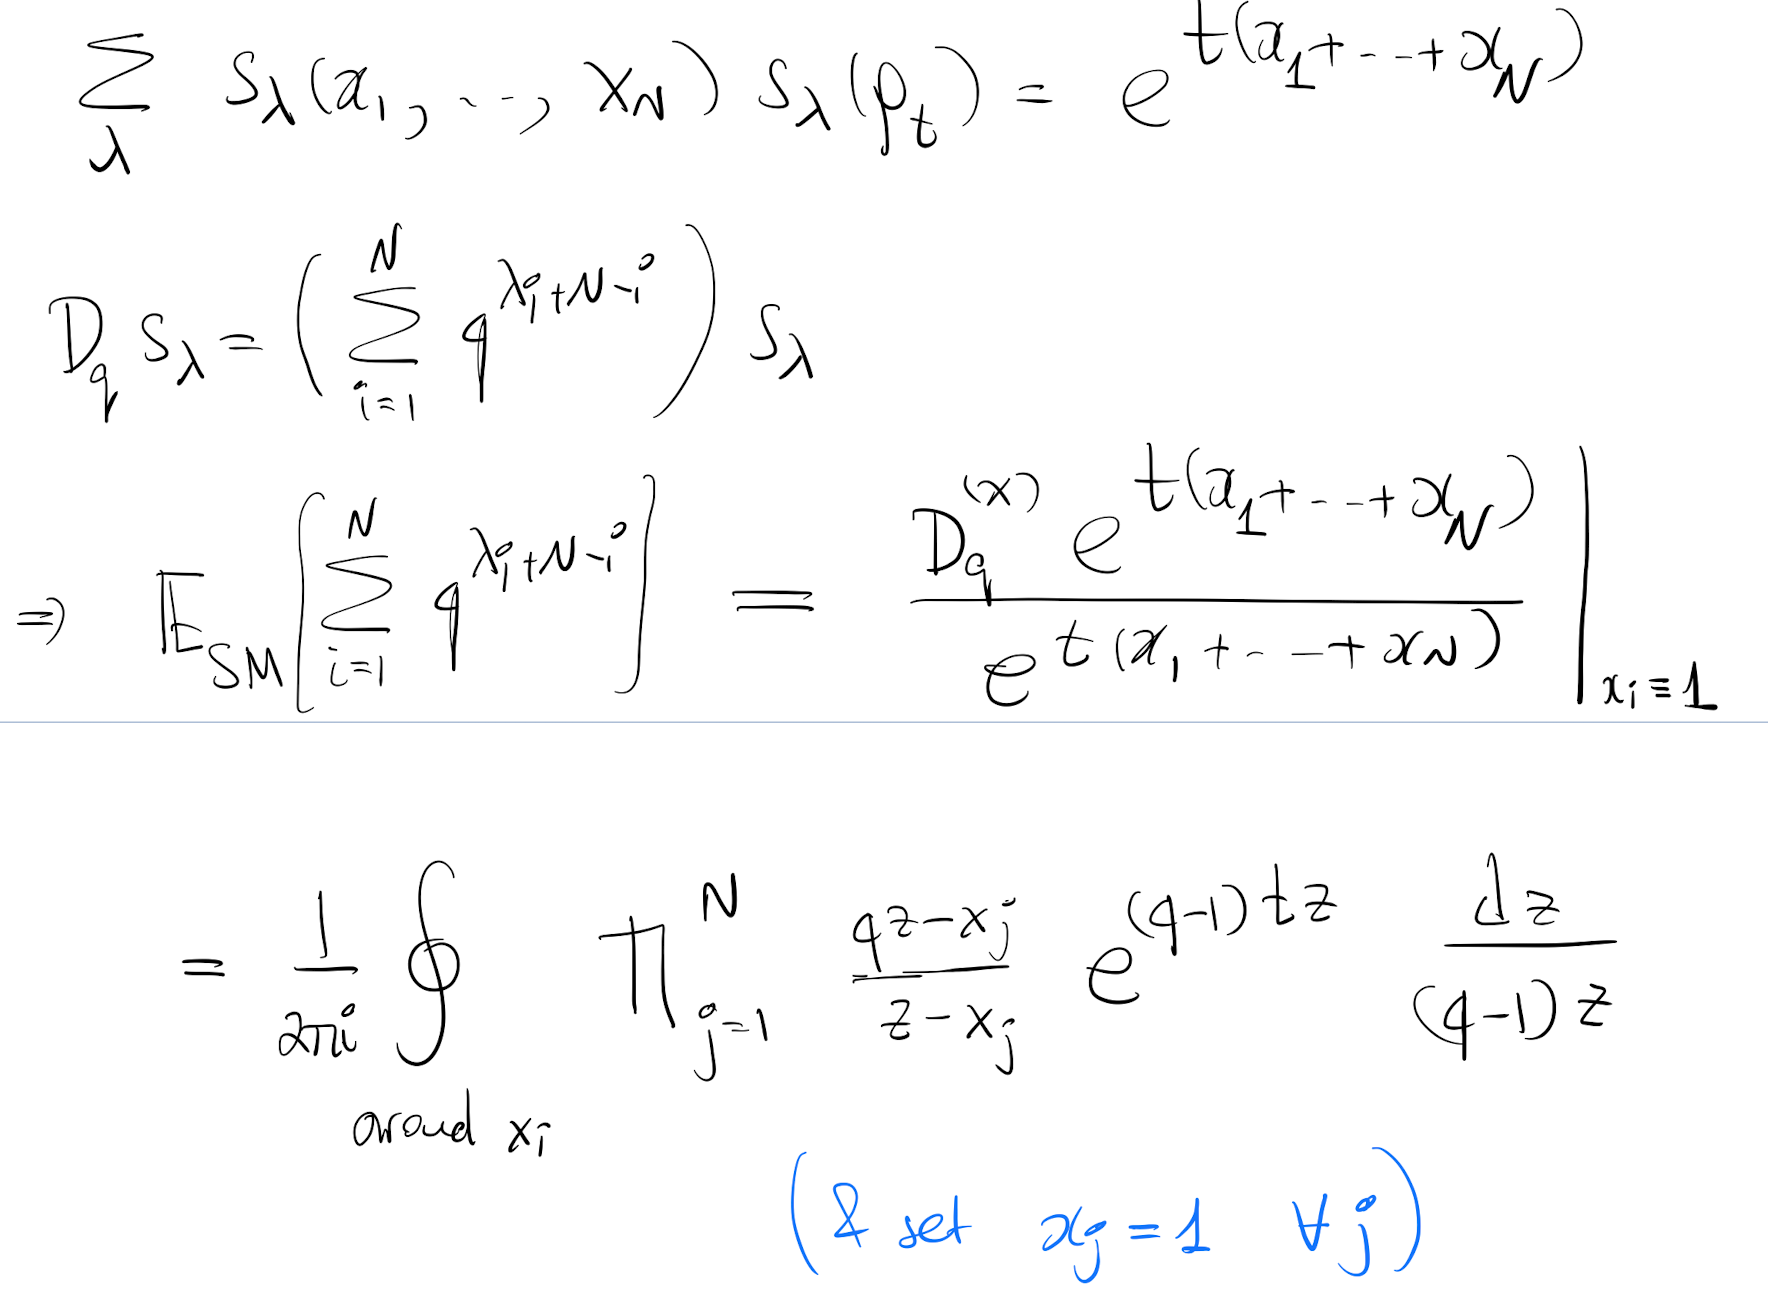 $\sum_{\lambda} s_\lambda(x_1, \ldots, x_N) s_\lambda(\rho_t) = e^{t(x_1 + \cdots + x_N)}$
$D_q s_\lambda = \left( \sum_{i=1}^{N} q^{\lambda_i + N - i} \right) s_\lambda$
$\Rightarrow \mathbb{E}_{SM} \left[ \sum_{i=1}^{N} q^{\lambda_i + N - i} \right] = \left. \frac{D_q^{(x)} e^{t(x_1 + \cdots + x_N)}}{e^{t(x_1 + \cdots + x_N)}} \right|_{x_i \equiv 1}$
$= \frac{1}{2\pi i} \oint_{\text{around } x_i} \prod_{j=1}^{N} \frac{qz - x_j}{z - x_j} e^{(q-1)tz} \frac{dz}{(q-1)z}$
(& set $x_j = 1 \ \forall j$)